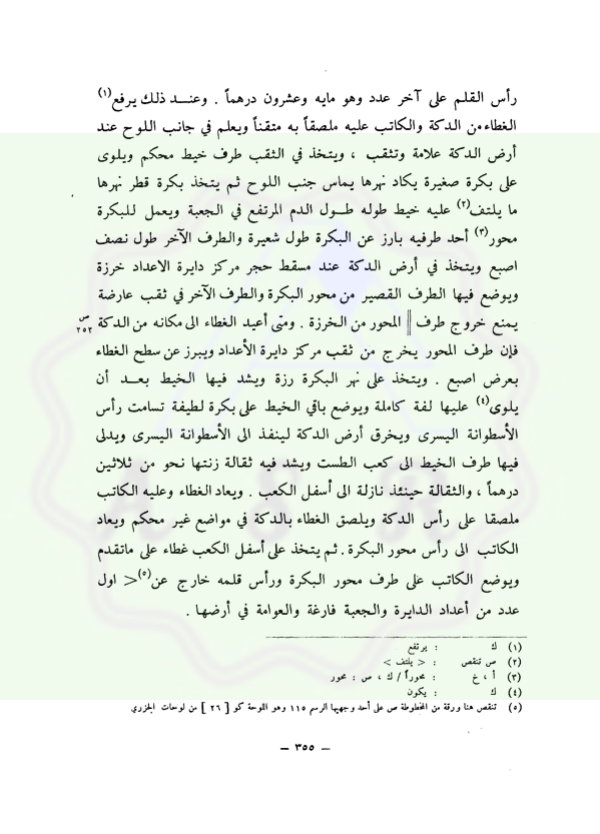 رأس القلم على آخر عدد وهو مايه وعشرون درهماً . وعنـــد ذلك يرفع(١)
الغطاء من الدكة والكاتب عليه ملصقاً به متقناً ويعلم في جانب اللوح عند
أرض الدكة علامة وتثقب ، ويتخذ في الثقب طرف خيط محكم ويلوى
على بكرة صغيرة يكاد نهرها يماس جنب اللوح ثم يتخذ بكرة قطر نهرها
ما يلتف(٢) عليه خيط طوله طـــول الدم المرتفع في الجعبة ويعمل للبكرة
محور(٣) أحد طرفيه بارز عن البكرة طول شعيرة والطرف الآخر طول نصف
اصبع ويتخذ في أرض الدكة عند مسقط حجر مركز دايرة الاعداد خرزة
ويوضع فيها الطرف القصير من محور البكرة والطرف الآخر في ثقب عارضة
يمنع خروج طرف || المحور من الخرزة . ومتى أعيد الغطاء الى مكانه من الدكة
ص ٢٥٢
فإن طرف المحور يخرج من ثقب مركز دايرة الأعداد ويبرز عن سطح الغطاء
بعرض اصبع . ويتخذ على نهر البكرة رزة ويشد فيها الخيط بعـــد أن
يلوى(٤) عليها لفة كاملة ويوضع باقي الخيط على بكرة لطيفة تسامت رأس
الأسطوانة اليسرى ويخرق أرض الدكة لينفذ الى الأسطوانة اليسرى ويدلى
فيها طرف الخيط الى كعب الطست ويشد فيه ثقالة زنتها نحو من ثلاثين
درهماً ، والثقالة حينئذ نازلة الى أسفل الكعب . ويعاد الغطاء وعليه الكاتب
ملصقا على رأس الدكة ويلصق الغطاء بالدكة في مواضع غير محكم ويعاد
الكاتب الى رأس محور البكرة . ثم يتخذ على أسفل الكعب غطاء على ماتقدم
ويوضع الكاتب على طرف محور البكرة ورأس قلمه خارج عن(٥)< اول
عدد من أعداد الدايرة والجعبة فارغة والعوامة في أرضها .
(١) ك : يرتفع
(٢) س تنقص : < يلتف >
(٣) أ ، خ : محوراً / ك ، ص : محور
(٤) ك : يكون
(٥) تنقص هنا ورقة من المخطوطة ص على أحد وجهيها الرسم ١١٥ وهو اللوحة كو [ ٢٦ ] من لوحات الجزري
– ٣٥٥ –